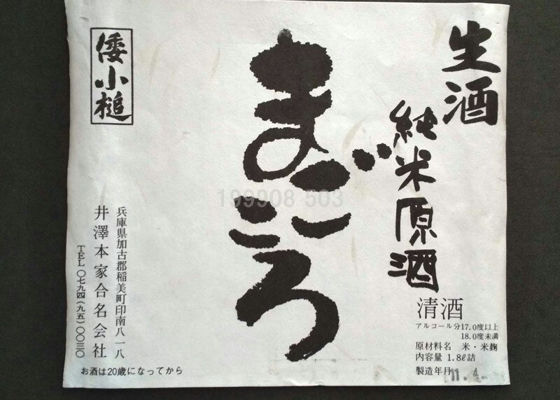 生酒
純米原酒
まごころ
倭小槌
清酒
アルコール分17.0度以上
18.0度未満
原材料名 米・米麹
内容量 1.8ℓ詰
製造年月 11.4
兵庫県加古郡稲美町印南八一八
井澤本家合名会社
TEL〇七九四(九五)〇〇三〇
お酒は20歳になってから
199908 503